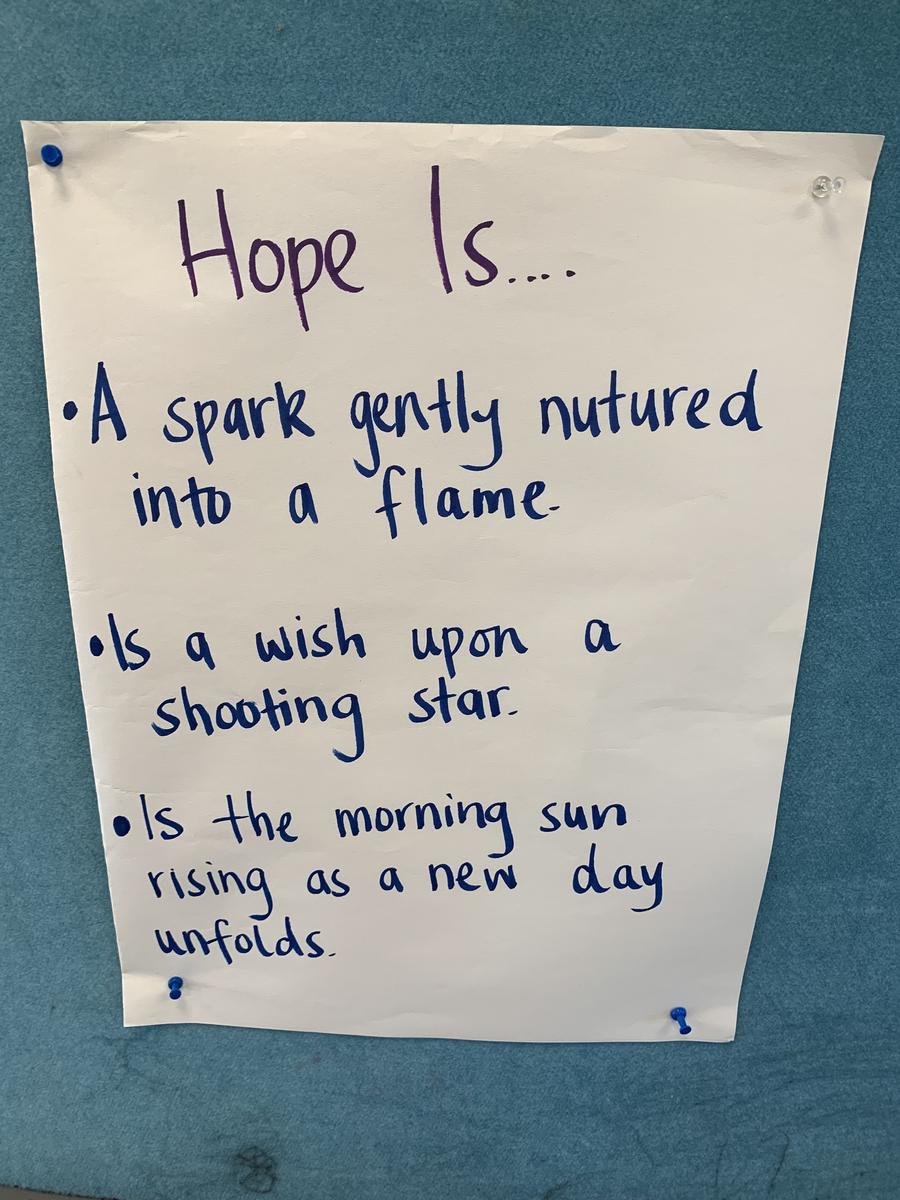 Hope Is....
•A spark gently nutured
into a flame.
•Is a wish upon a
shooting star.
•Is the morning sun
rising as a new day
unfolds.